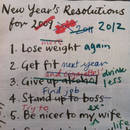 New Year's Resolutions
for 2009 2011 2012
1. Lose weight again
2. Get fit next year
3. Give up alcohol drink less
Find job
4. Stand up to boss
5. Be nicer to my wife
ex
life